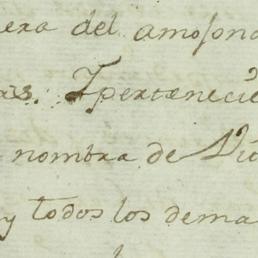 era del amosona
as. Ypertenecie
nombra de Vic
y todos los dema